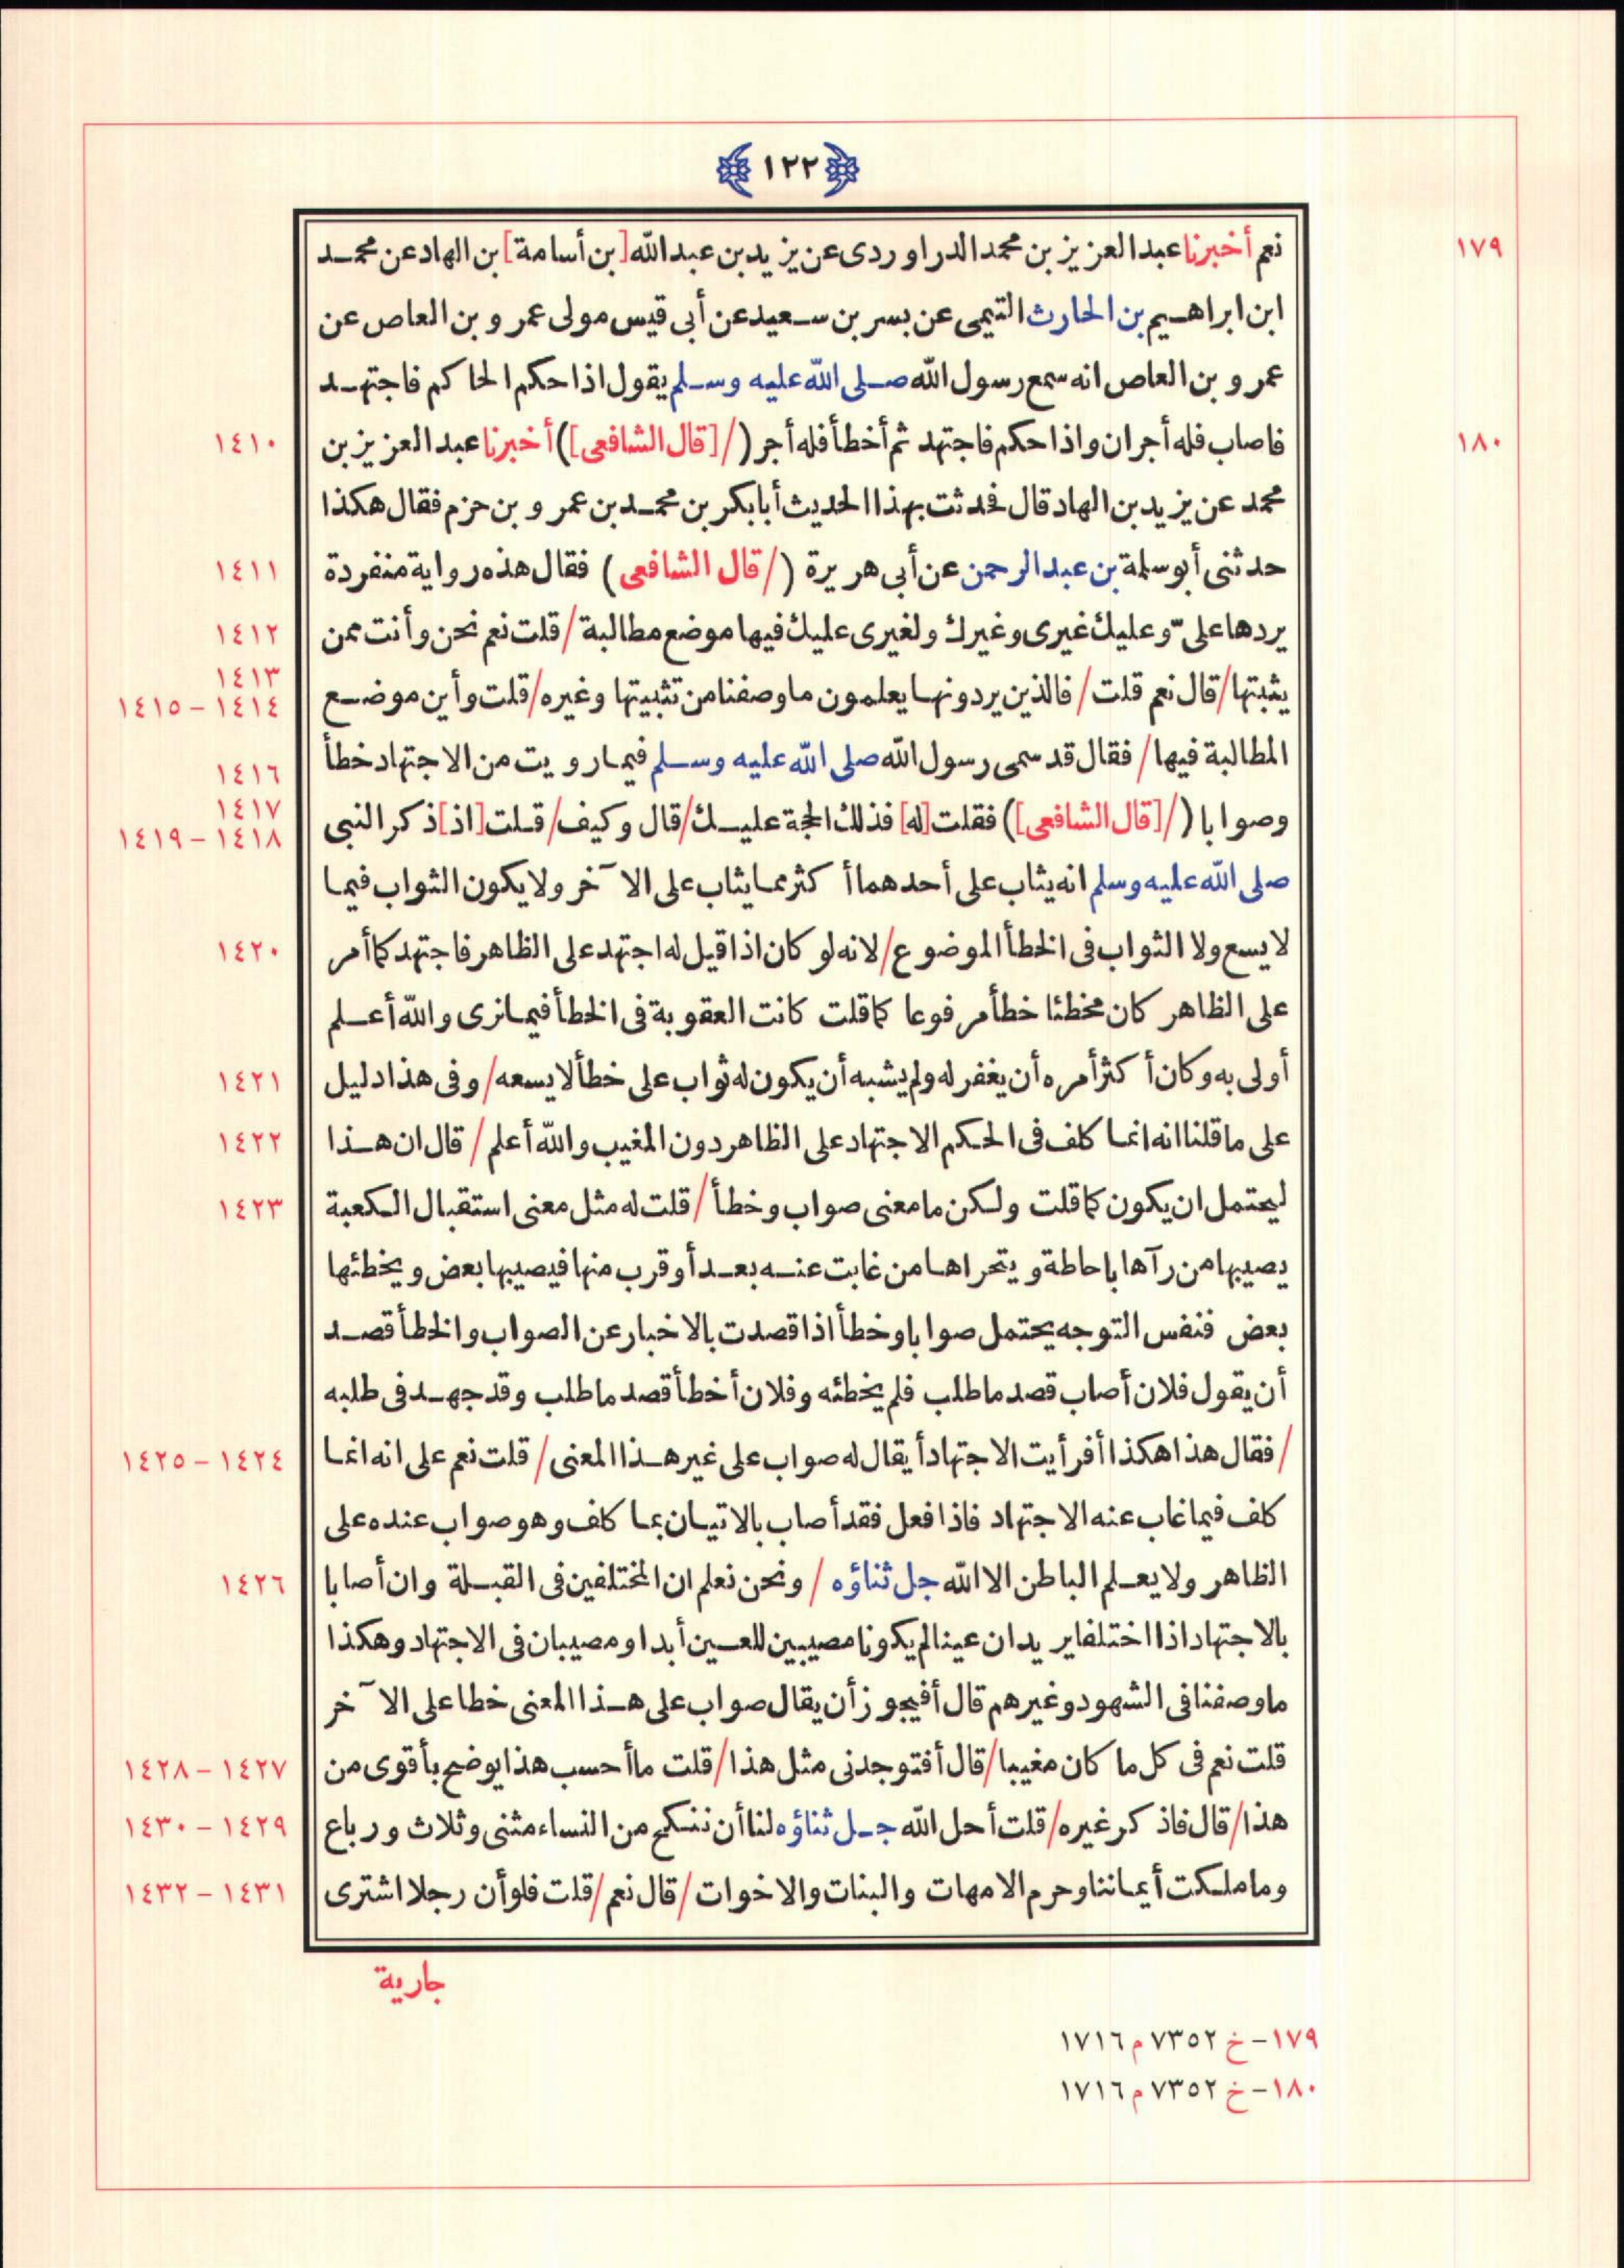 ١٢٢
١٧٩ نعم أخبرنا عبد العزيز بن محمد الدراوردى عن يزيد بن عبد الله [بن أسامة] بن الهاد عن محمد
ابن ابراهيم بن الحارث التيمى عن بسر بن سعيد عن أبى قيس مولى عمرو بن العاص عن
عمرو بن العاص انه سمع رسول الله صلى الله عليه وسلم يقول اذا حكم الحاكم فاجتهد
١٨٠ فاصاب فله أجران واذا حكم فاجتهد ثم أخطأ فله أجر (/[قال الشافعى]) أخبرنا عبد العزيز بن ١٤١٠
محمد عن يزيد بن الهاد قال فحدثت بهذا الحديث أبا بكر بن محمد بن عمرو بن حزم فقال هكذا
حدثنى أبو سلمة بن عبد الرحمن عن أبى هريرة (/قال الشافعى) فقال هذه رواية منفردة ١٤١١
يردها علىّ وعليك غيرى وغيرك ولغيرى عليك فيها موضع مطالبة / قلت نعم نحن وأنت ممن ١٤١٢
يثبتها / قال نعم قلت / فالذين يردونها يعلمون ما وصفنا من تثبيتها وغيره / قلت وأين موضع ١٤١٣ ١٤١٤ - ١٤١٥
المطالبة فيها / فقال قد سمى رسول الله صلى الله عليه وسلم فيما رويت من الاجتهاد خطأ ١٤١٦
وصوابا (/[قال الشافعى]) فقلت [له] فذلك الحجة عليك / قال وكيف / قلت [اذ] ذكر النبى ١٤١٧ ١٤١٨ - ١٤١٩
صلى الله عليه وسلم انه يثاب على أحدهما أكثر مما يثاب على الآخر ولا يكون الثواب فيما
لا يسع ولا الثواب فى الخطأ الموضوع / لانه لو كان اذا قيل له اجتهد على الظاهر فاجتهد كما أمر ١٤٢٠
على الظاهر كان مخطئا خطأ مرفوعا كما قلت كانت العقوبة فى الخطأ فيما نرى والله أعلم
أولى به وكان أكثر أمره أن يغفر له ولم يشبه أن يكون له ثواب على خطأ لا يسعه / وفى هذا دليل ١٤٢١
على ما قلنا انه انما كلف فى الحكم الاجتهاد على الظاهر دون المغيب والله أعلم / قال ان هذا ١٤٢٢
ليحتمل ان يكون كما قلت ولكن ما معنى صواب وخطأ / قلت له مثل معنى استقبال الكعبة ١٤٢٣
يصيبها من رآها باحاطة ويتحراها من غابت عنه بعد أو قرب منها فيصيبها بعض ويخطئها
بعض فنفس التوجه يحتمل صوابا وخطأ اذا قصدت بالاخبار عن الصواب والخطأ قصد
أن يقول فلان أصاب قصد ما طلب فلم يخطئه وفلان أخطأ قصد ما طلب وقد جهد فى طلبه
/ فقال هذا هكذا أفرأيت الاجتهاد أيقال له صواب على غير هذا المعنى / قلت نعم على انه انما ١٤٢٤ - ١٤٢٥
كلف فيما غاب عنه الاجتهاد فاذا فعل فقد أصاب بالاتيان بما كلف وهو صواب عنده على
الظاهر ولا يعلم الباطن الا الله جل ثناؤه / ونحن نعلم ان المختلفين فى القبلة وان أصابا ١٤٢٦
بالاجتهاد اذا اختلفا يريدان عينا لم يكونا مصيبين للعين أبدا ومصيبان فى الاجتهاد وهكذا
ما وصفنا فى الشهود وغيرهم قال أفيجوز أن يقال صواب على هذا المعنى خطا على الآخر
قلت نعم فى كل ما كان مغيبا / قال أفتوجدنى مثل هذا / قلت ما أحسب هذا يوضح بأقوى من ١٤٢٧ - ١٤٢٨
هذا / قال فاذكر غيره / قلت أحل الله جل ثناؤه لنا أن ننكح من النساء مثنى وثلاث ورباع ١٤٢٩ - ١٤٣٠
وما ملكت أيماننا وحرم الامهات والبنات والاخوات / قال نعم / قلت فلو أن رجلا اشترى ١٤٣١ - ١٤٣٢
جارية
١٧٩ - خ ٧٣٥٢ م ١٧١٦
١٨٠ - خ ٧٣٥٢ م ١٧١٦